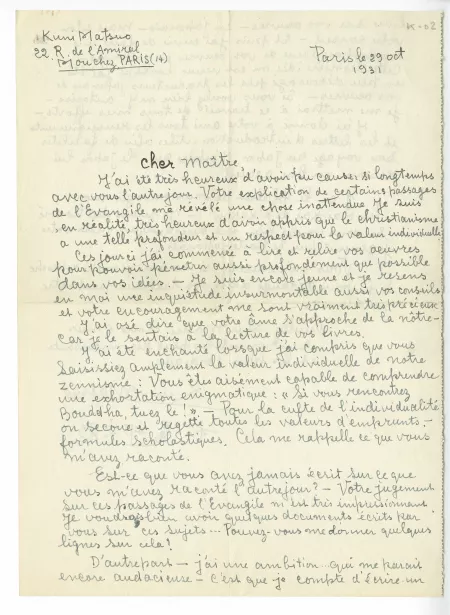 K-02
Kuni Matsuo
22 R. de l'Amiral
Mouchez PARIS (14)
Paris le 29 oct
1931
cher Maître,
J'ai été très heureux d'avoir pu causer si longtemps
avec vous l'autre jour. Votre explication de certains passages
de l'Evangile me révélé une chose inattendue. Je suis
en réalité, très heureux d'avoir appris que le christianisme
a une telle profondeur et un respect pour la valeur individuelle
Ces jours ci j'ai commencé à lire et relire vos œuvres
pour pouvoir pénétrer aussi profondément que possible
dans vos idées. — Je suis encore jeune et je ressens
en moi une inquiétude insurmontable aussi vos conseils
et votre encouragement me sont vraiment très précieux
J'ai osé dire que votre âme s'approche de la nôtre-
car je le sentais à la lecture de vos livres.
J'ai été enchanté lorsque j'ai compris que vous
saisissiez amplement la valeur individuelle de notre
zennisme : Vous êtes aisément capable de comprendre
une exhortation enigmatique : « Si vous rencontrez
Bouddha, tuez le ! ». — Pour la culte de l'individualité
on secoue et rejette toutes les valeurs d'emprunts, —
formules scholastiques. Cela me rappelle ce que vous
m'avez raconté.
Est-ce que vous avez jamais écrit sur ce que
vous m'avez raconté l'autre jour ? — Votre jugement
sur ces passages de l'Evangile m'est très impressionnant
Je voudrais bien avoir quelques documents écrits par
vous sur ces sujets... Pouvez-vous me donner quelques
lignes sur cela !
D'autre part — j'ai une ambition... qui me parait
encore audacieuse — c'est que je compte d'écrire un